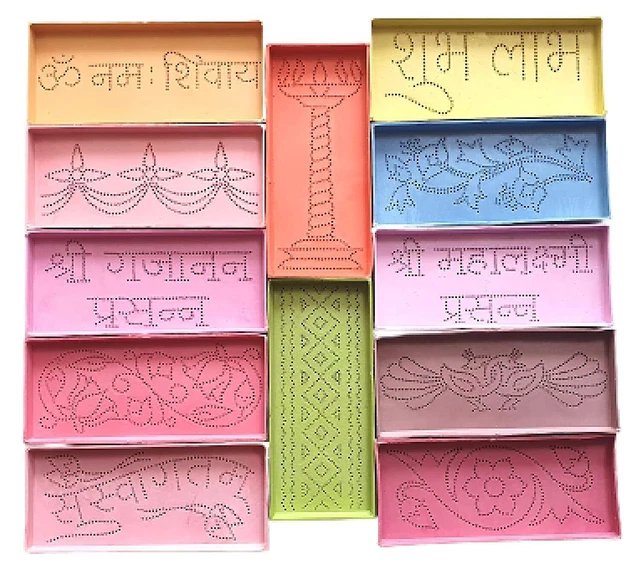 ॐ नमः शिवाय
शुभ लाभ
श्री गजानन
प्रसन्न
श्री महालक्ष्मी
प्रसन्न
सुस्वागतम्